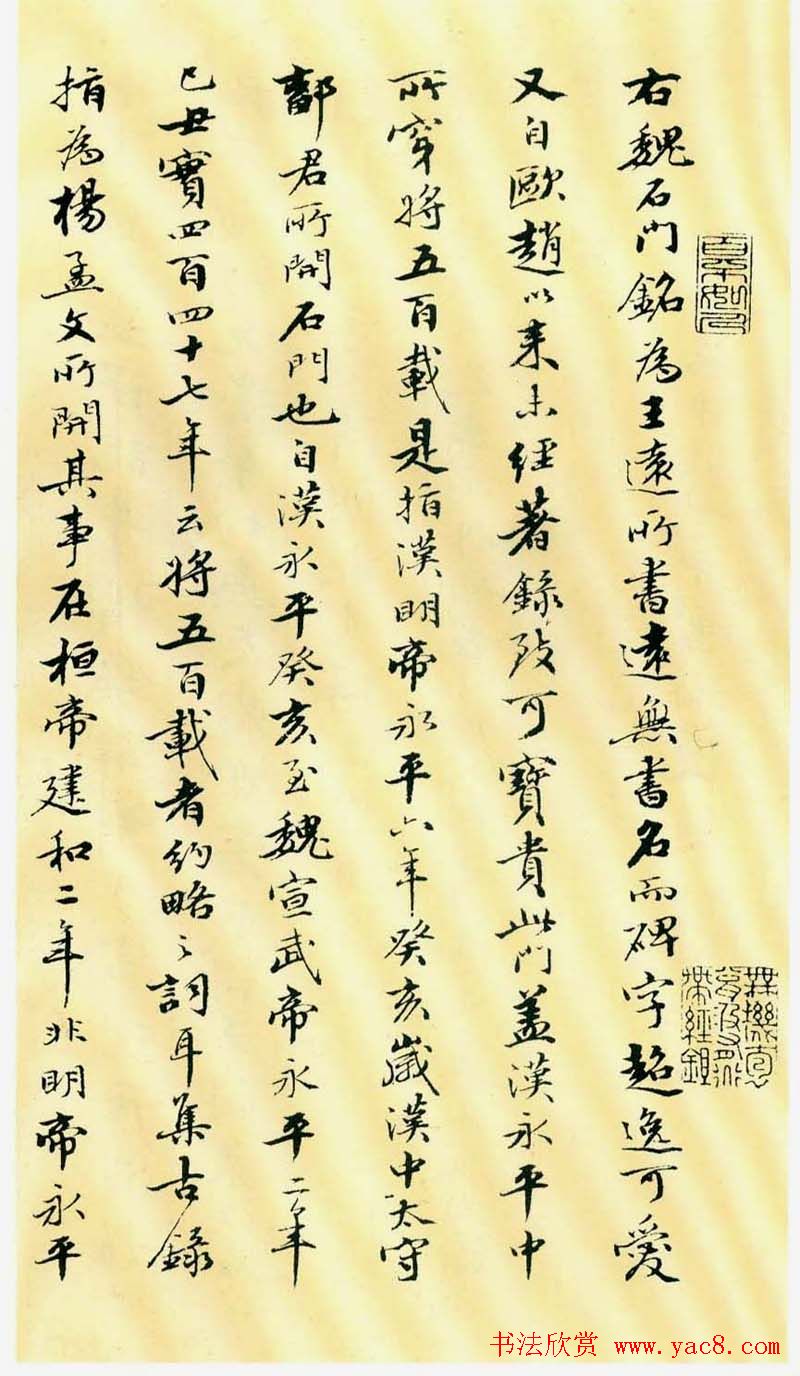 右魏石門銘為王遠所書遠無書名而碑字超逸可愛
又自歐趙以来未經著錄致可寶貴此門蓋漢永平中
所穿將五百載是指漢明帝永平六年癸亥歲漢中太守
鄐君所開石門也自漢永平癸亥至魏宣武帝永平二年
己丑實四百四十七年云將五百載者約略之詞耳集古錄
指為楊孟文所開其事在桓帝建和二年非明帝永平
书法欣赏 www.yac8.com